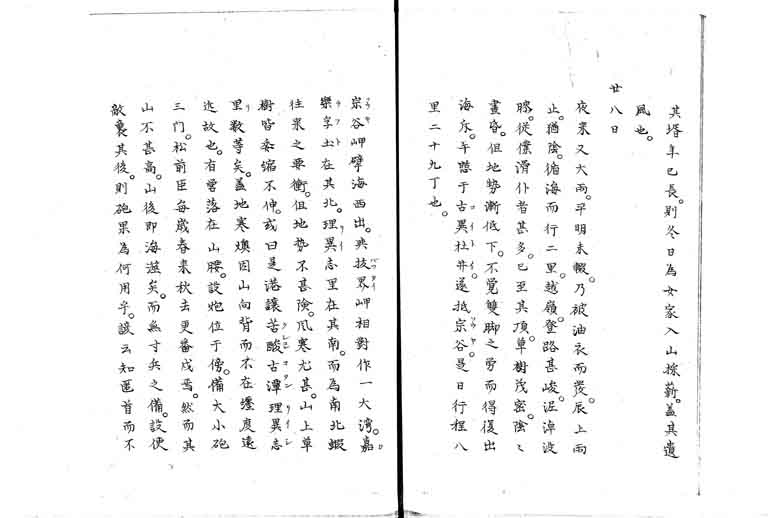 其壻年已長。則冬日為女家入山採薪。蓋其遺
風也。
廿八日
夜来又大雨。平明未輟。乃被油衣而發。辰上雨
止。猶陰。循海而行二里。越嶺。登路甚峻。泥淖没
膝。従僕滑仆者甚多。已至其頂。草樹茂密。陰々
晝昏。但地勢漸低下。不覚雙脚之労而得復出
海斥。午憩于古異杜井。遂抵宗谷。是日行程八
里二十九丁也。
宗谷岬擘海西出。與抜界岬相對作一大湾。嘉
樂孚土在其北。理異志里在其南。而為南北蝦
往来之要衝。但地勢不甚険。風寒尤甚。山上草
樹皆委縮不伸。或曰是港譲苦酸古潭理異志
里数等矣。蓋地寒燠因山向背而不在
故也。有営落在山腰。設炮位于傍。備大小砲
三门。松前臣毎歳春来秋去更番戍焉。然而其
山不甚高。山後即海滋矣。而無寸兵之備。設使
敵襲其後。則砲果為何用乎。諺云知匿首而不